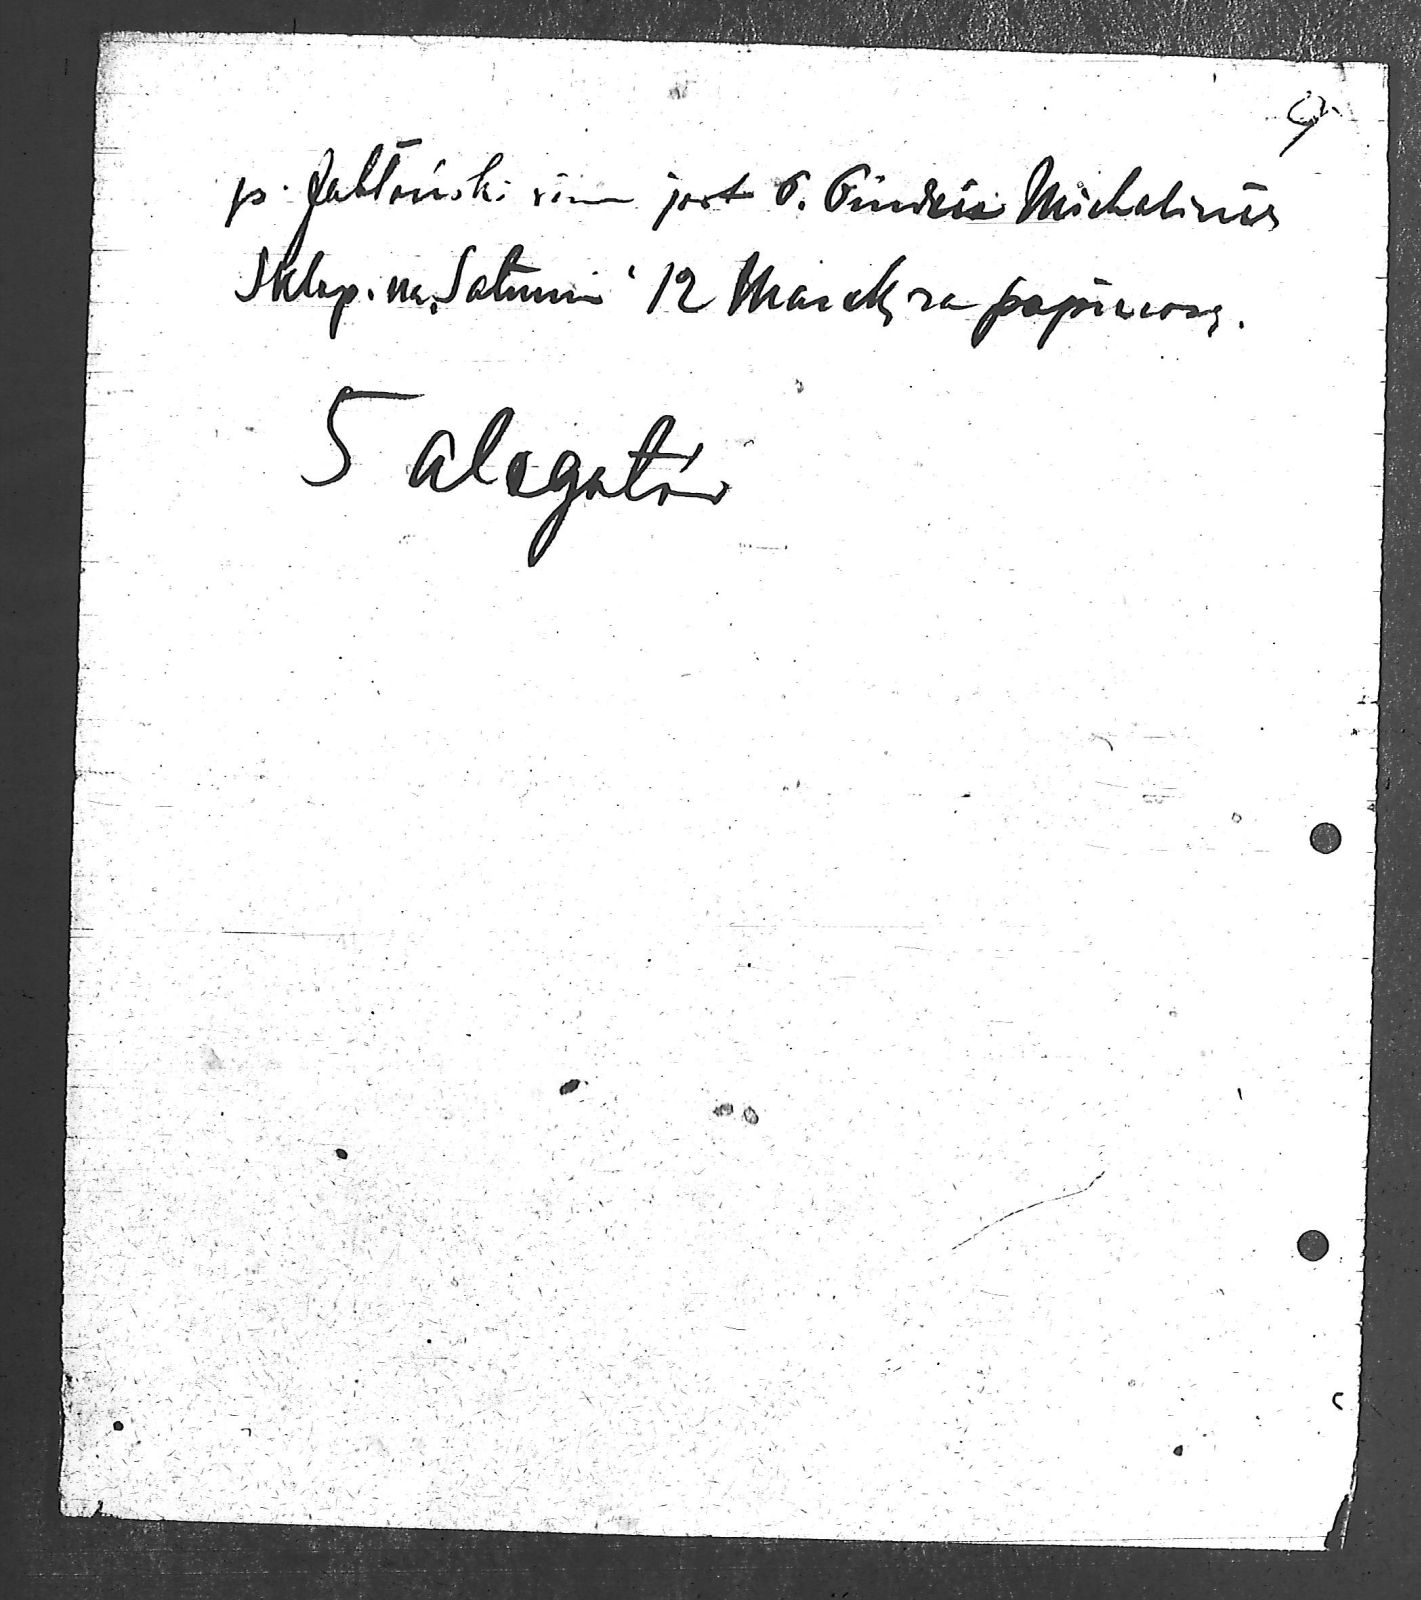 p. Jabłoński winien jest O. Michalinie
Sklep. na „Saturnie“ 12 Marek za papierosy.
5 alegatów